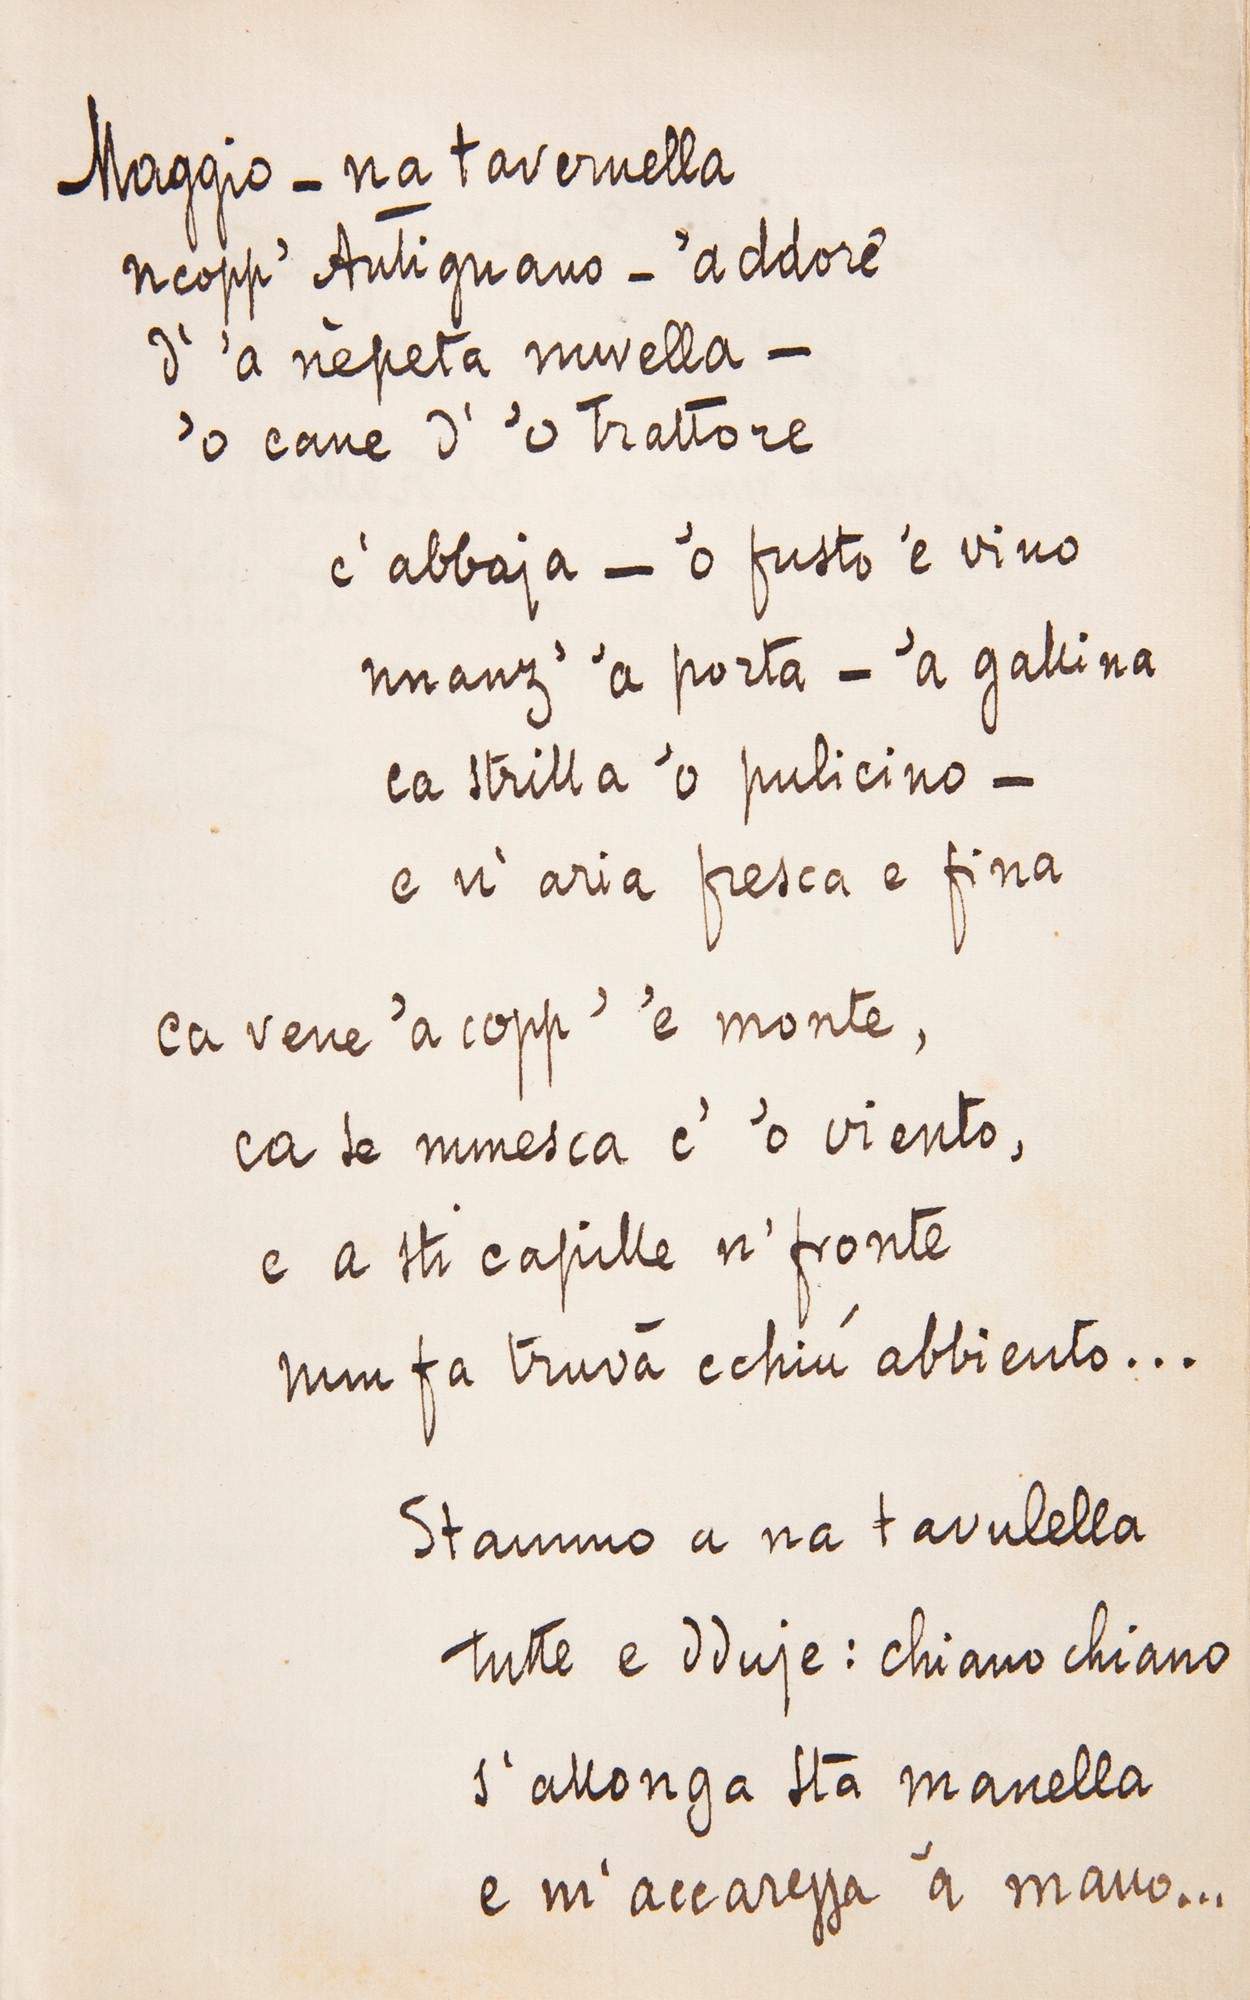 Maggio – na tavernella
ncopp' Antignano – 'addore
d' 'a nèpeta nuvella –
'o cane d' 'o trattore
c' abbaja – 'o fusto 'e vino
nnanz' 'a porta – 'a gallina
ca strilla 'o pulicino –
e n' aria fresca e fina
ca vene 'a copp' 'e monte,
ca se mmesca c' 'o viento,
e a sti capille n' fronte
nun fa truvà cchiú abbiento...
Stammo a na tavulella
tutte e dduje: chiano chiano
s' allonga sta manella
e m' accarezza 'a mano...